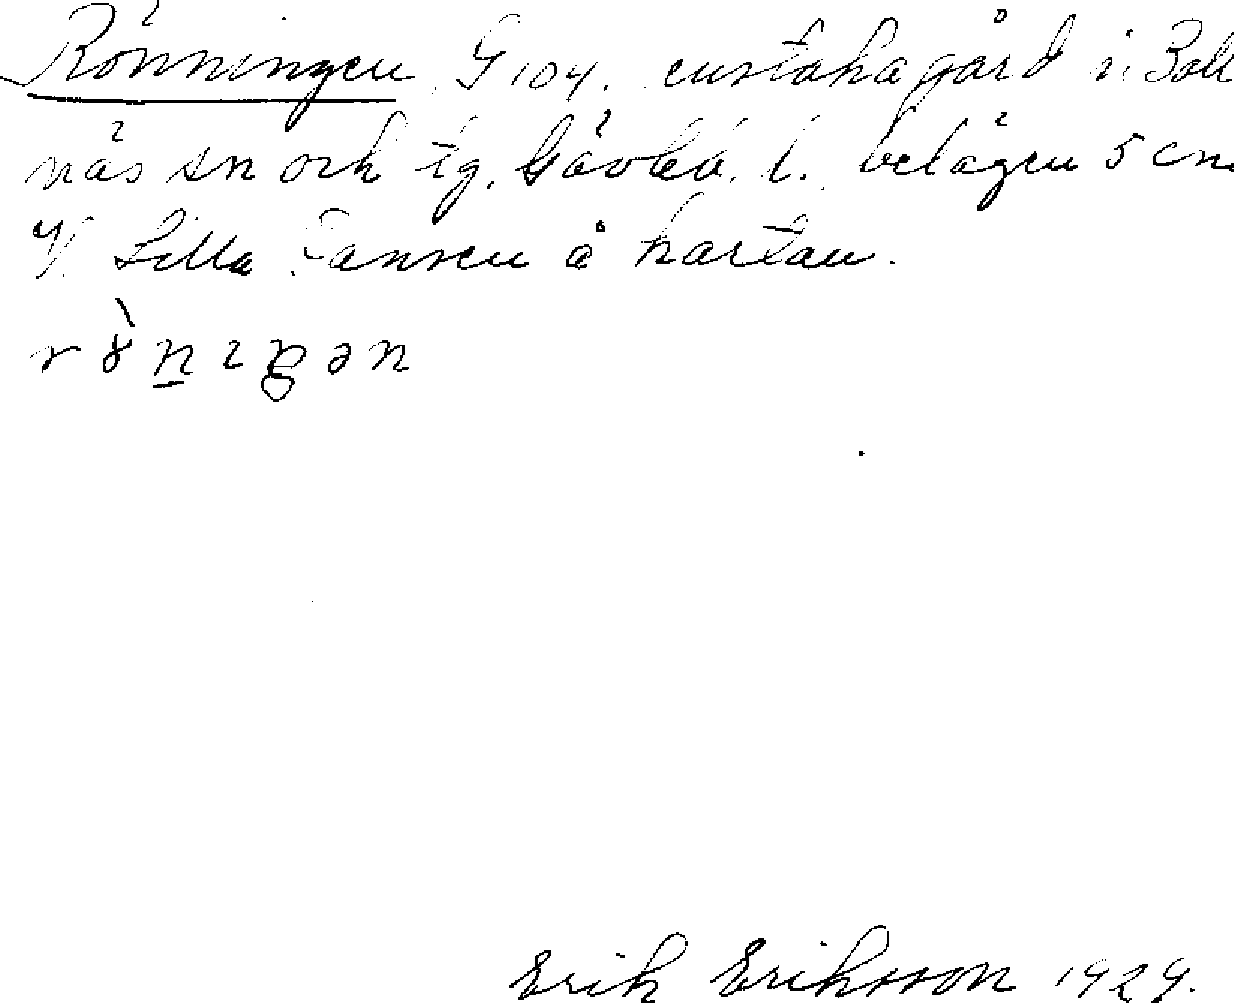 Rönningen G 104. enstaka gård i Boll
näs sn och tg. Gävleb. l. belägen 5 cm
V. Lilla Fansen å kartan.
Erik Eriksson 1929.